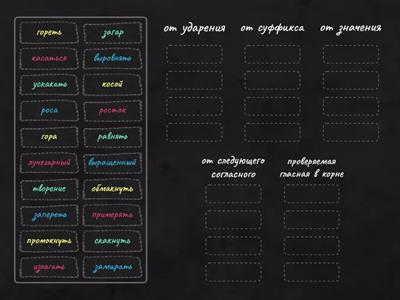 гореть загар
касаться выровнять
ускакать косой
роса росток
гора равнять
лучезарный выращенный
творение обмакнуть
запереть примерять
промокнуть скакнуть
излагать замирать
от ударения от суффикса от значения
от следующего
согласного
проверяемая
гласная в корне